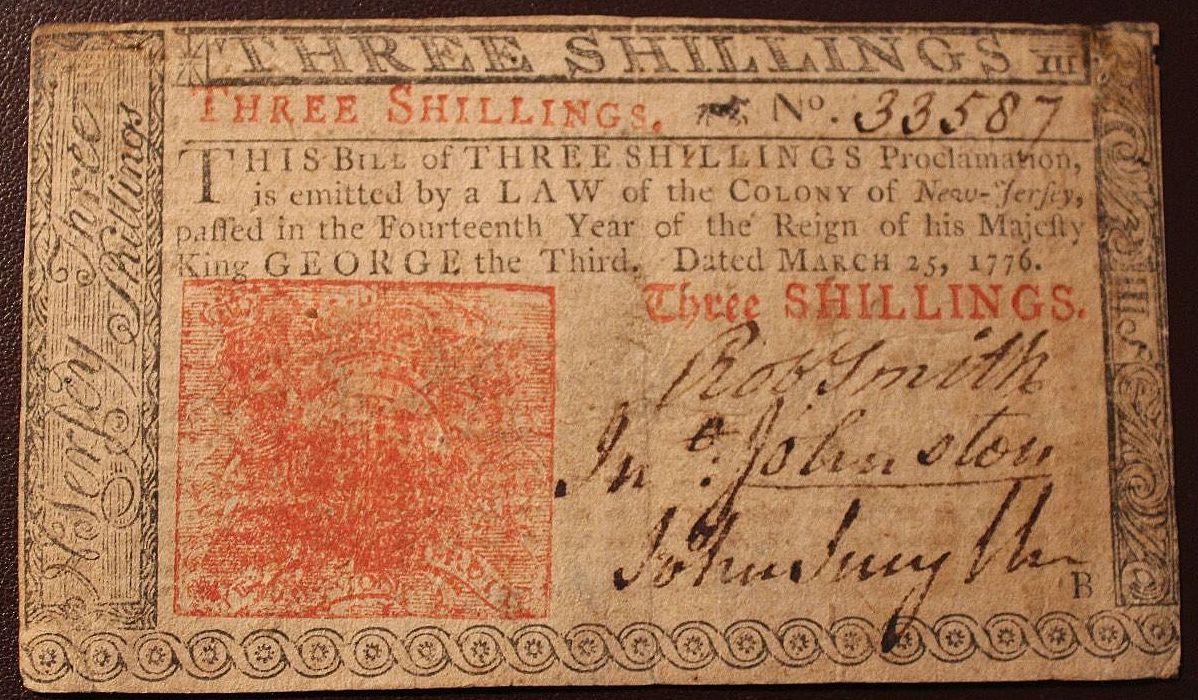 THREE SHILLINGS III
THREE SHILLINGS. No. 33587
THIS BILL of THREE SHILLINGS Proclamation,
is emitted by a LAW of the COLONY of New-Jerſey,
paſſed in the Fourteenth Year of the Reign of his Majeſty
King GEORGE the Third. Dated MARCH 25, 1776.
Three SHILLINGS.
Robt Smith
Jno. Johnston
John Smyth
B
N Jerſey Three
Shillings